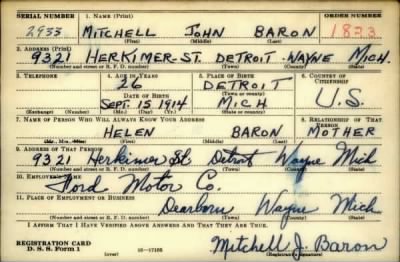 SERIAL NUMBER 1. NAME (Print) ORDER NUMBER
2933 MITCHELL JOHN BARON 1833
(First) (Middle) (Last)
2. ADDRESS (Print)
9321 HERKIMER-ST. DETROIT-WAYNE MICH.
(Number and street or R. F. D. number) (Town) (County) (State)
3. TELEPHONE 4. AGE IN YEARS 5. PLACE OF BIRTH 6. COUNTRY OF CITIZENSHIP
26 DETROIT
DATE OF BIRTH (Town or county)
SEPT. 15 1914 MICH U.S.
(Exchange) (Number) (Mo.) (Day) (Yr.) (State or country)
7. NAME OF PERSON WHO WILL ALWAYS KNOW YOUR ADDRESS 8. RELATIONSHIP OF THAT PERSON
HELEN BARON MOTHER
(First) (Middle) (Last)
9. ADDRESS OF THAT PERSON
9321 Herkimer St Detroit Wayne Mich
(Number and street or R. F. D. number) (Town) (County) (State)
10. EMPLOYER'S NAME
Ford Motor Co.
11. PLACE OF EMPLOYMENT OR BUSINESS
Dearborn Wayne Mich.
(Number and street or R. F. D. number) (Town) (County) (State)
I AFFIRM THAT I HAVE VERIFIED ABOVE ANSWERS AND THAT THEY ARE TRUE.
REGISTRATION CARD
D. S. S. Form 1 (over) Mitchell J. Baron
(Registrant's signature)